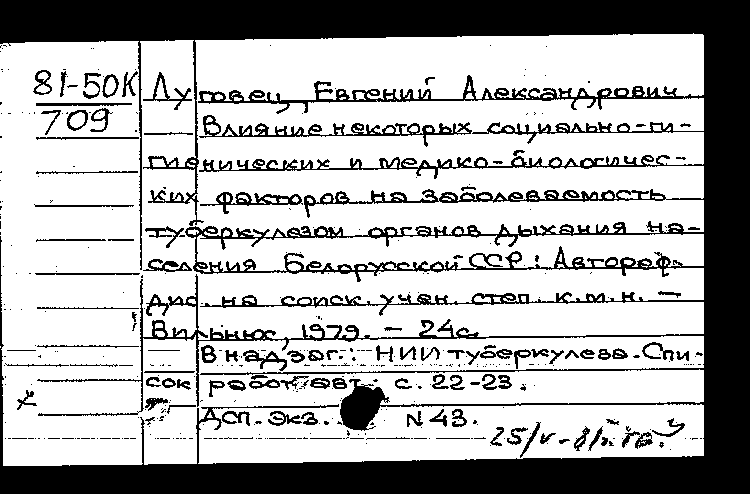 81-50К Луговец, Евгений Александрович.
709
Влияние некоторых социально-ги-
гиенических и медико-биологичес-
ких факторов на заболеваемость
туберкулезом органов дыхания на-
селения Белорусской ССР: Автореф.
дис. на соиск. учен. степ. к.м.н. —
Вильнюс, 1979. - 24с.
В надзаг.: НИИ туберкулеза. Спи-
сок работ авт.: с. 22-23.
ДСП. Экз. N 43.
25/V-81г.